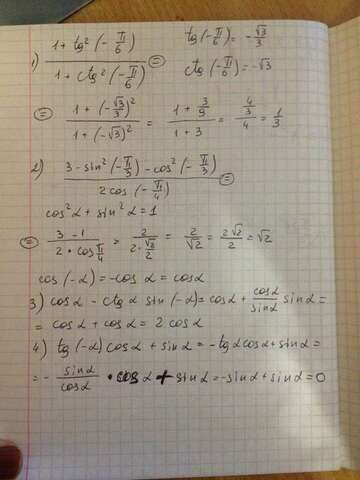 1) (1 + tg²(-π/6)) / (1 + ctg²(-π/6)) = tg(-π/6) = -√3/3
ctg(-π/6) = -√3
= (1 + (-√3/3)²) / (1 + (-√3)²) = (1 + 3/9) / (1 + 3) = (4/3) / 4 = 1/3
2) (3 - sin²(-π/3) - cos²(-π/3)) / (2 cos(-π/4)) =
cos²α + sin²α = 1
= (3 - 1) / (2 · cos π/4) = 2 / (2 · √2/2) = 2/√2 = 2√2/2 = √2
cos(-α) = -cos α = cosα
3) cosα - ctgα sin(-α) = cosα + cosα/sinα sinα =
= cosα + cosα = 2 cosα
4) tg(-α) cosα + sinα = -tgα cosα + sinα =
= - sinα/cosα · cosα + sinα = -sinα + sinα = 0